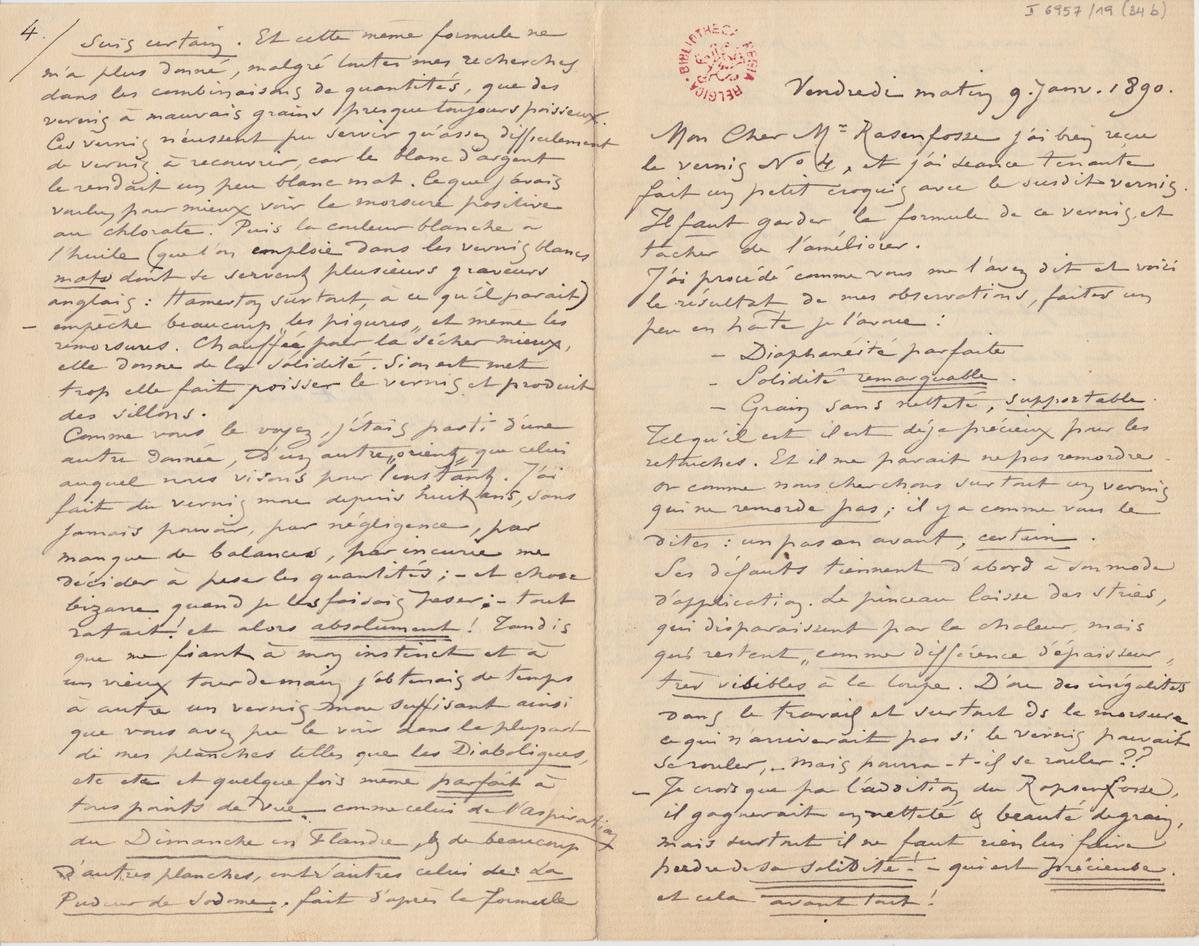 I 6957/19 (34 b)
4.
suis certain. Et cette même formule ne
m'a plus donné, malgré toutes mes recherches
dans les combinaisons de quantités, que des
vernis à mauvais grains presque toujours poisseux.
Ces vernis n'eussent pu servir qu'assez difficilement
de vernis à recouvrir, car le blanc d'argent
le rendait un peu blanc mat. Ce que j'avais
voulu pour mieux voir la morsure positive
au chlorate. Puis la couleur blanche à
l'huile (que l'on emploie dans les vernis blancs
mats dont se servent plusieurs graveurs
anglais : Hamerton surtout, à ce qu'il parait)
– empêche beaucoup „les piqures„ et même les
remorsures. Chauffée pour la sécher mieux,
elle donne de la solidité. Si on en met
trop elle fait poisser le vernis et produit
des sillons.
Comme vous le voyez, j'étais parti d'une
autre donnée, d'un autre „orient„ que celui
auquel nous visons pour l'instant. J'ai
fait du vernis mou depuis huit ans, sans
jamais pouvoir, par négligence, par
manque de balances, par incurie me
décider à peser les quantités ; – et chose
bizarre quand je les faisais peser ; – tout
ratait ! et alors absolument ! Tandis
que me fiant à mon instinct et à
un vieux tour de main j'obtenais de temps
à autre un vernis mou suffisant ainsi
que vous avez pu le voir dans la plupart
de mes planches telles que les Diaboliques,
etc etc et quelque fois même parfait à
tous points de vue. comme celui de l'aspiration
du Dimanche en Flandre, & de beaucoup
d'autres planches, entr'autres celui de : La
Pudeur de Sodome. fait d'après la formule
BIBLIOTHECA REGIA BELGICA
Vendredi matin 9. Janv. 1890.
Mon Cher Mr Rasenfosse j'ai bien reçu
le vernis No 4, et j'ai séance tenante
fait un petit croquis avec le susdit vernis.
Il faut garder la formule de ce vernis et
tacher de l'améliorer.
J'ai procédé comme vous me l'avez dit et voici
le résultat de mes observations, faites un
peu en hâte je l'avoue :
– Diaphanéité parfaite
– Solidité remarquable.
– Grain sans netteté, supportable.
Tel qu'il est il est déja précieux pour les
retouches. Et il me parait ne pas remordre.
or comme nous cherchons surtout un vernis
qui ne remorde pas ; il y a comme vous le
dites : un pas en avant, certain.
Ses défauts tiennent d'abord à son mode
d'application. Le pinceau laisse des stries,
qui disparaissent par la chaleur, mais
qui restent „comme différence d'épaisseur„
très visibles à la loupe. D'où des inégalités
dans le travail et surtout ds la morsure
ce qui n'arriverait pas si le vernis pouvait
se rouler, – mais pourra-t-il se rouler ??
– Je crois que par l'addition du Ropsenfosse,
il gagnerait en netteté & beauté de grain,
mais surtout il ne faut rien lui faire
perdre de sa solidité ! – qui est précieuse.
et cela avant tout !